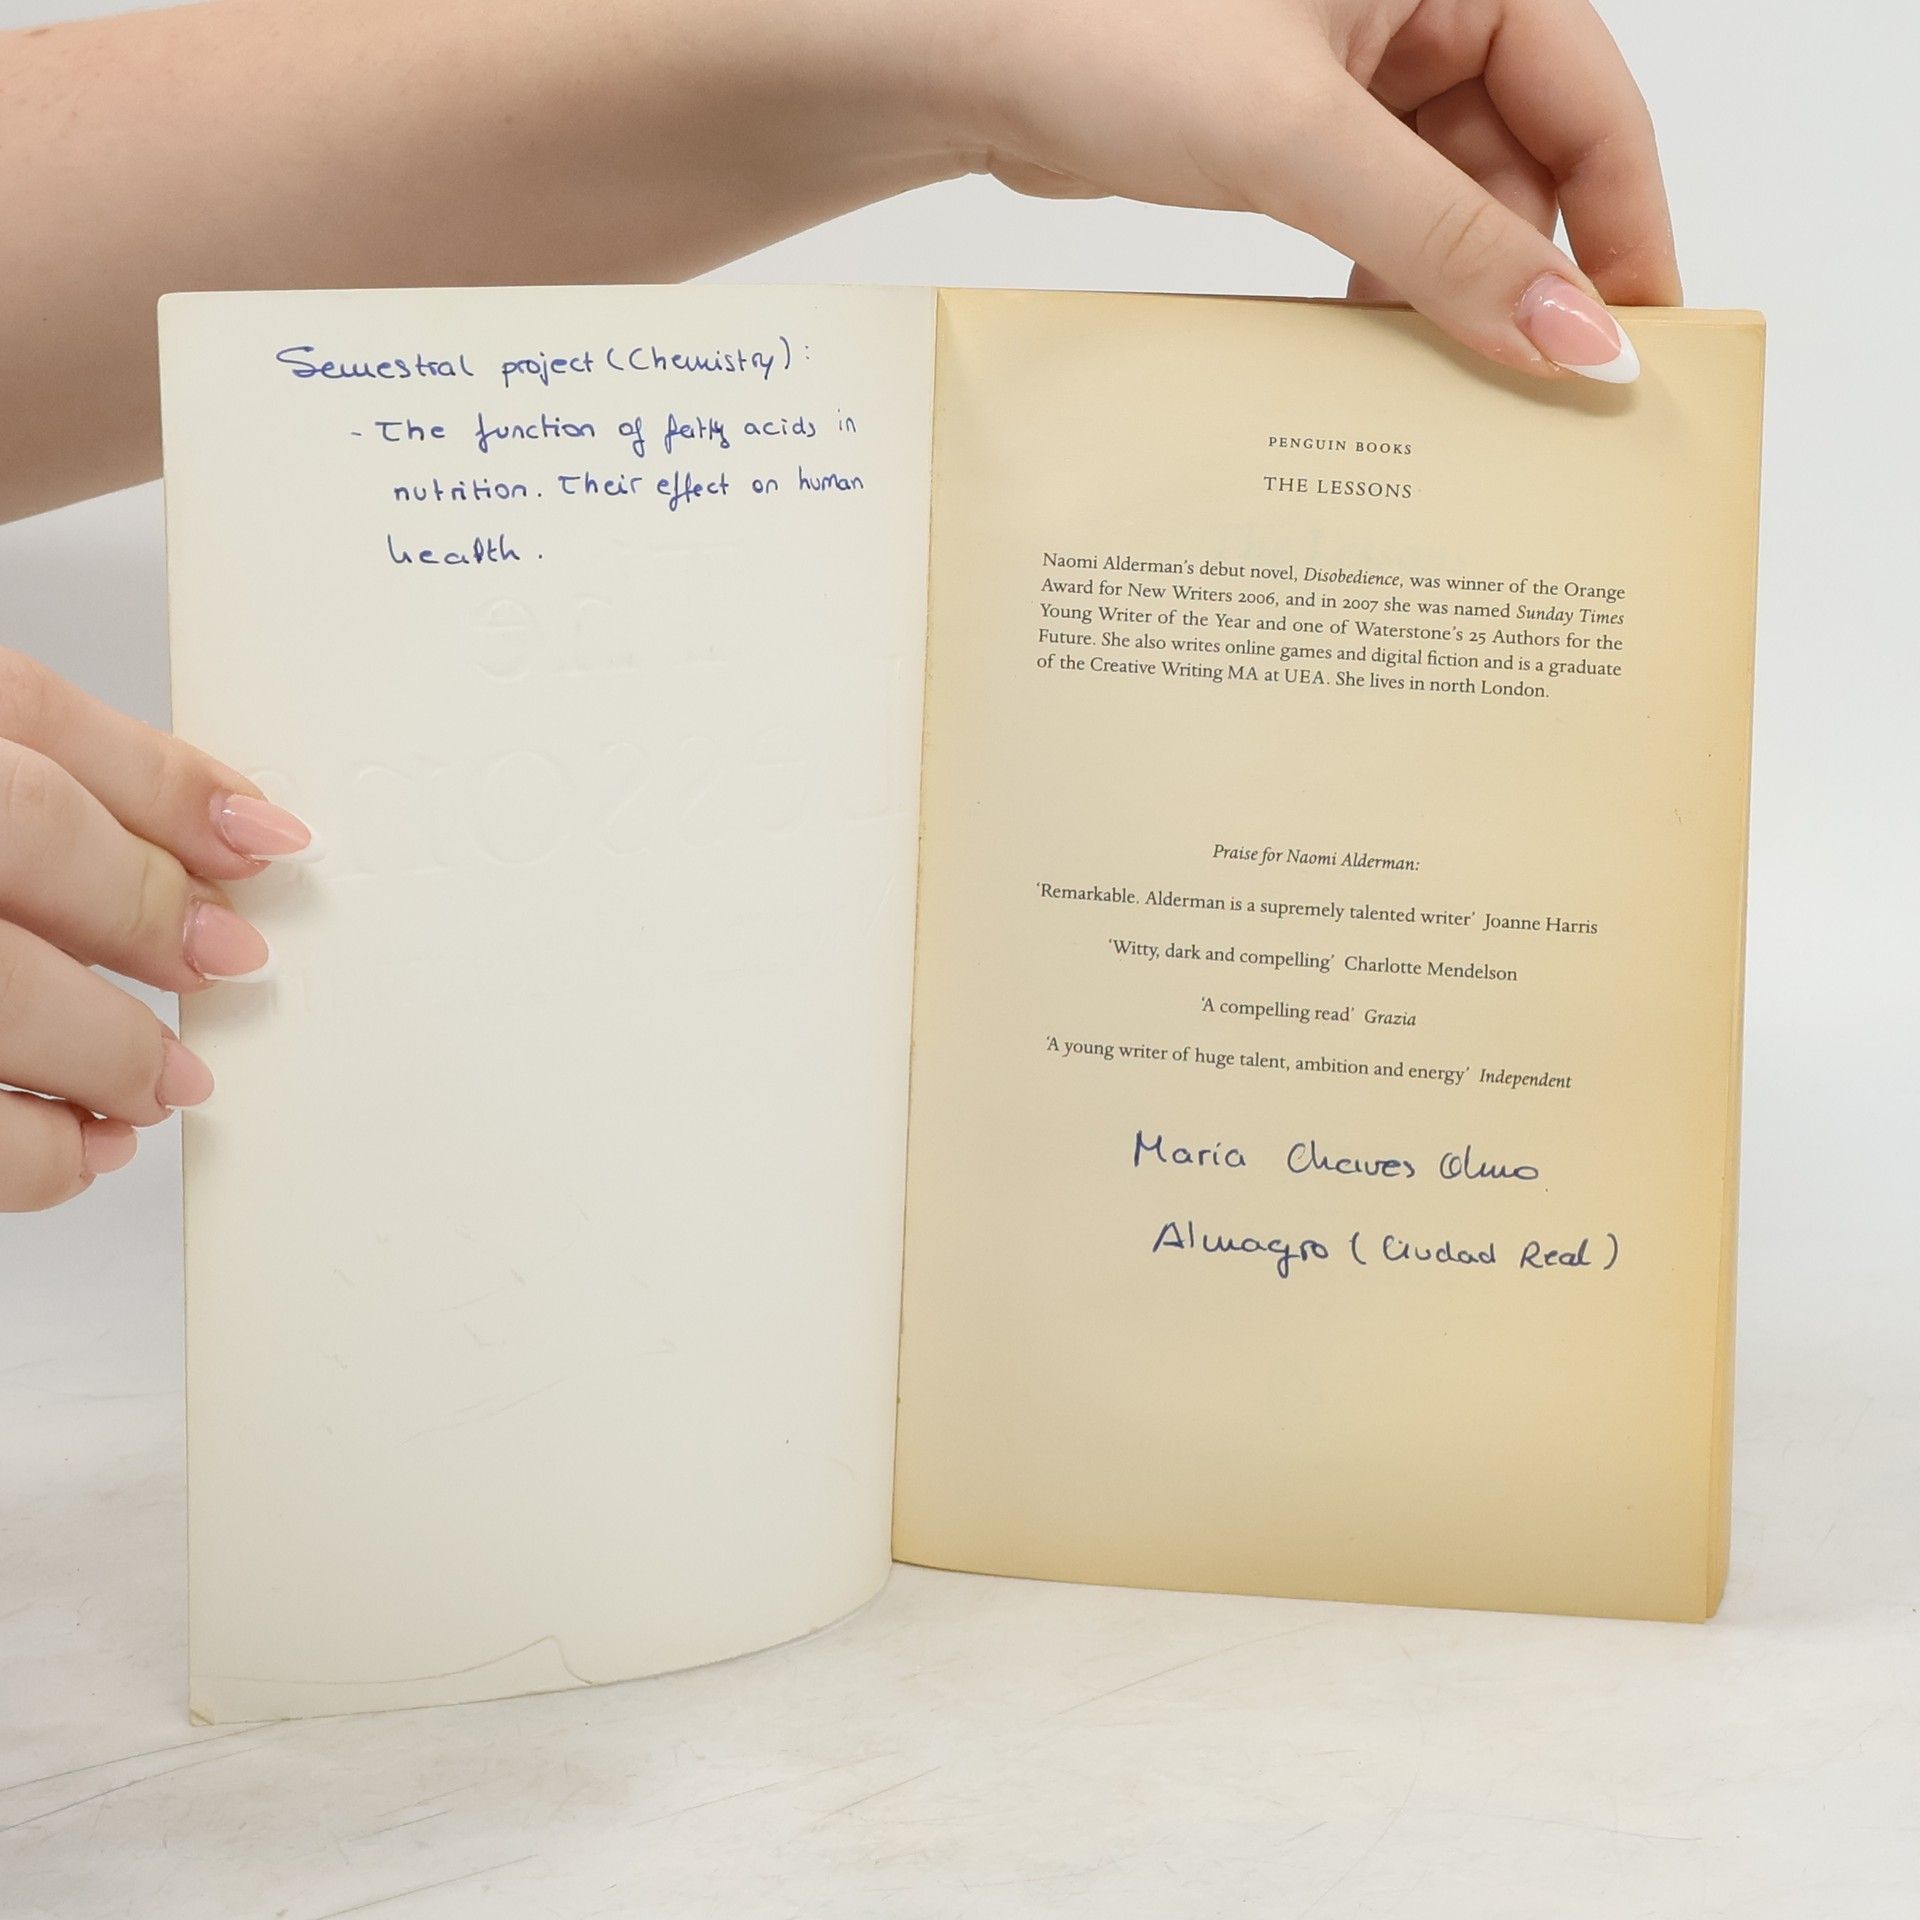 Semestral project (Chemistry):
- The function of fatty acids in
nutrition. Their effect on human
health.
PENGUIN BOOKS
THE LESSONS
Naomi Alderman's debut novel, Disobedience, was winner of the Orange
Award for New Writers 2006, and in 2007 she was named Sunday Times
Young Writer of the Year and one of Waterstone's 25 Authors for the
Future. She also writes online games and digital fiction and is a graduate
of the Creative Writing MA at UEA. She lives in north London.
Praise for Naomi Alderman:
‘Remarkable. Alderman is a supremely talented writer’ Joanne Harris
‘Witty, dark and compelling’ Charlotte Mendelson
‘A compelling read’ Grazia
‘A young writer of huge talent, ambition and energy’ Independent
María Chaves Olmo
Almagro (Ciudad Real)